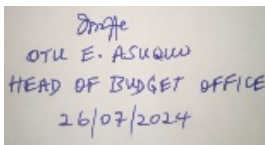 OTU E. ASUQUO
HEAD OF BUDGET OFFICE
26/07/2024